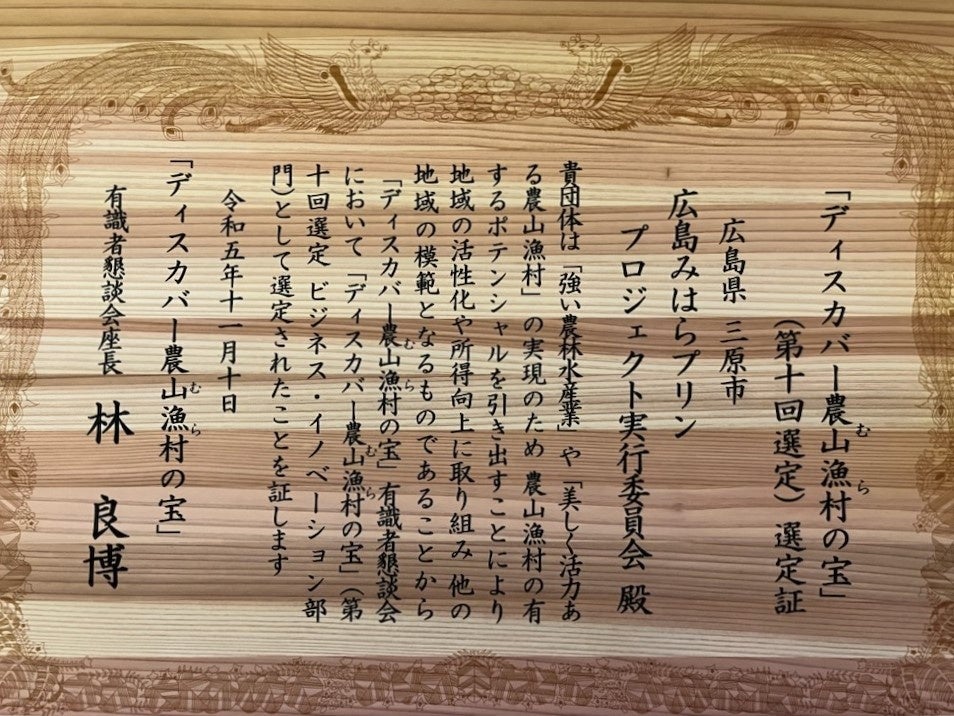 「ディスカバー農山漁村の宝」
むら
（第十回選定）選定証
広島県 三原市
広島みはらプリン
プロジェクト実行委員会 殿
貴団体は「強い農林水産業」や「美しく活力あ
る農山漁村」の実現のため 農山漁村の有
するポテンシャルを引き出すことにより
地域の活性化や所得向上に取り組み 他の
地域の模範となるものであることから
「ディスカバー農山漁村の宝」有識者懇談会
むら
において「ディスカバー農山漁村の宝」（第
むら
十回選定 ビジネス・イノベーション部
門）として選定されたことを証します
令和五年十一月十日
「ディスカバー農山漁村の宝」
むら
有識者懇談会座長 林 良博